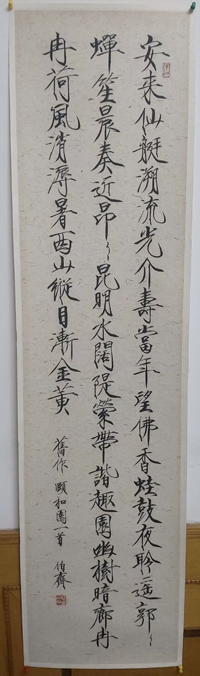 安來仙艇溯流光介壽當年望佛香蛙鼓夜聆遥郭〻
蟬笙晨奏近昂〻昆明水闊隄縈帶諧趣園幽樹暗廊冉
冉荷風消溽暑西山縱目漸金黃
舊作 頤和園一首 伯齋